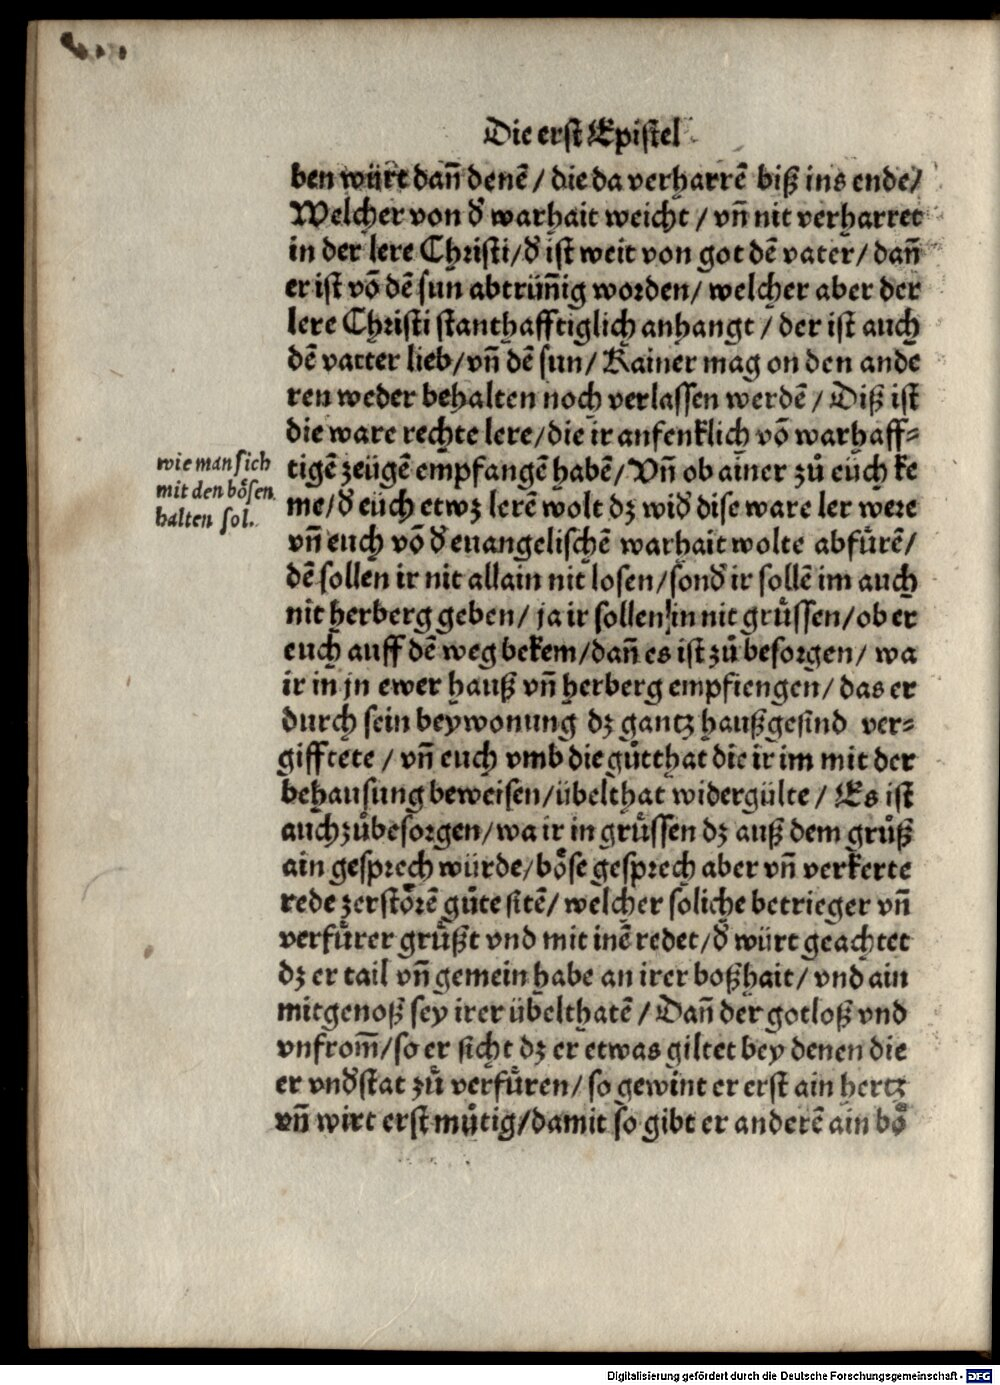 Die erst Epistel
ben würt dañ denē / die da verharrē biß ins ende /
Welcher von đ warhait weicht / vñ nit verharret
in der lere Christi / đ ist weit von got dē vater / dañ
er ist võ dē sun abtrüñig worden / welcher aber der
lere Christi stanthafftiglich anhangt / der ist auch
dē vatter lieb / vñ dē sun / Kainer mag on den ande
ren weder behalten noch verlassen werdē / Diß ist
die ware rechte lere / die ir anfenklich võ warhaff⸗
wie man sich
mit den bösen
halten sol.
tigē zeügē empfangē habē / Vñ ob ainer zů eüch ke
me / đ eüch etwz lerē wolt dz wiđ dise ware ler were
vñ euch võ đ euangelischē warhait wolte abfürē /
dē sollen ir nit allain nit losen / sonđ ir sollē im auch
nit herberg geben / ja ir sollen in nit grüssen / ob er
euch auff dē weg bekem / dañ es ist zů besorgen / wa
ir in jn ewer hauß vñ herberg empfiengen / das er
durch sein beywonung dz gantz haußgesind ver⸗
gifftete / vñ euch vmb die gůtthat die ir im mit der
behausung beweisen / übelthat widergülte / Es ist
auch zůbesorgen / wa ir in grüssen dz auß dem grůß
ain gesprech würde / böse gesprech aber vñ verkerte
rede zerstörē gůte sitē / welcher soliche betrieger vñ
verfürer grüßt vnd mit inē redet / đ würt geachtet
dz er tail vñ gemein habe an irer boßhait / vnd ain
mitgenoß sey irer übelthatē / Dañ der gotloß vnd
vnfrom̃ / so er sicht dz er etwas giltet bey denen die
er vnđstat zů verfüren / so gewint er erst ain hertz
vñ wirt erst můtig / damit so gibt er anderē ain bö
Digitalisierung gefördert durch die Deutsche Forschungsgemeinschaft - DFG